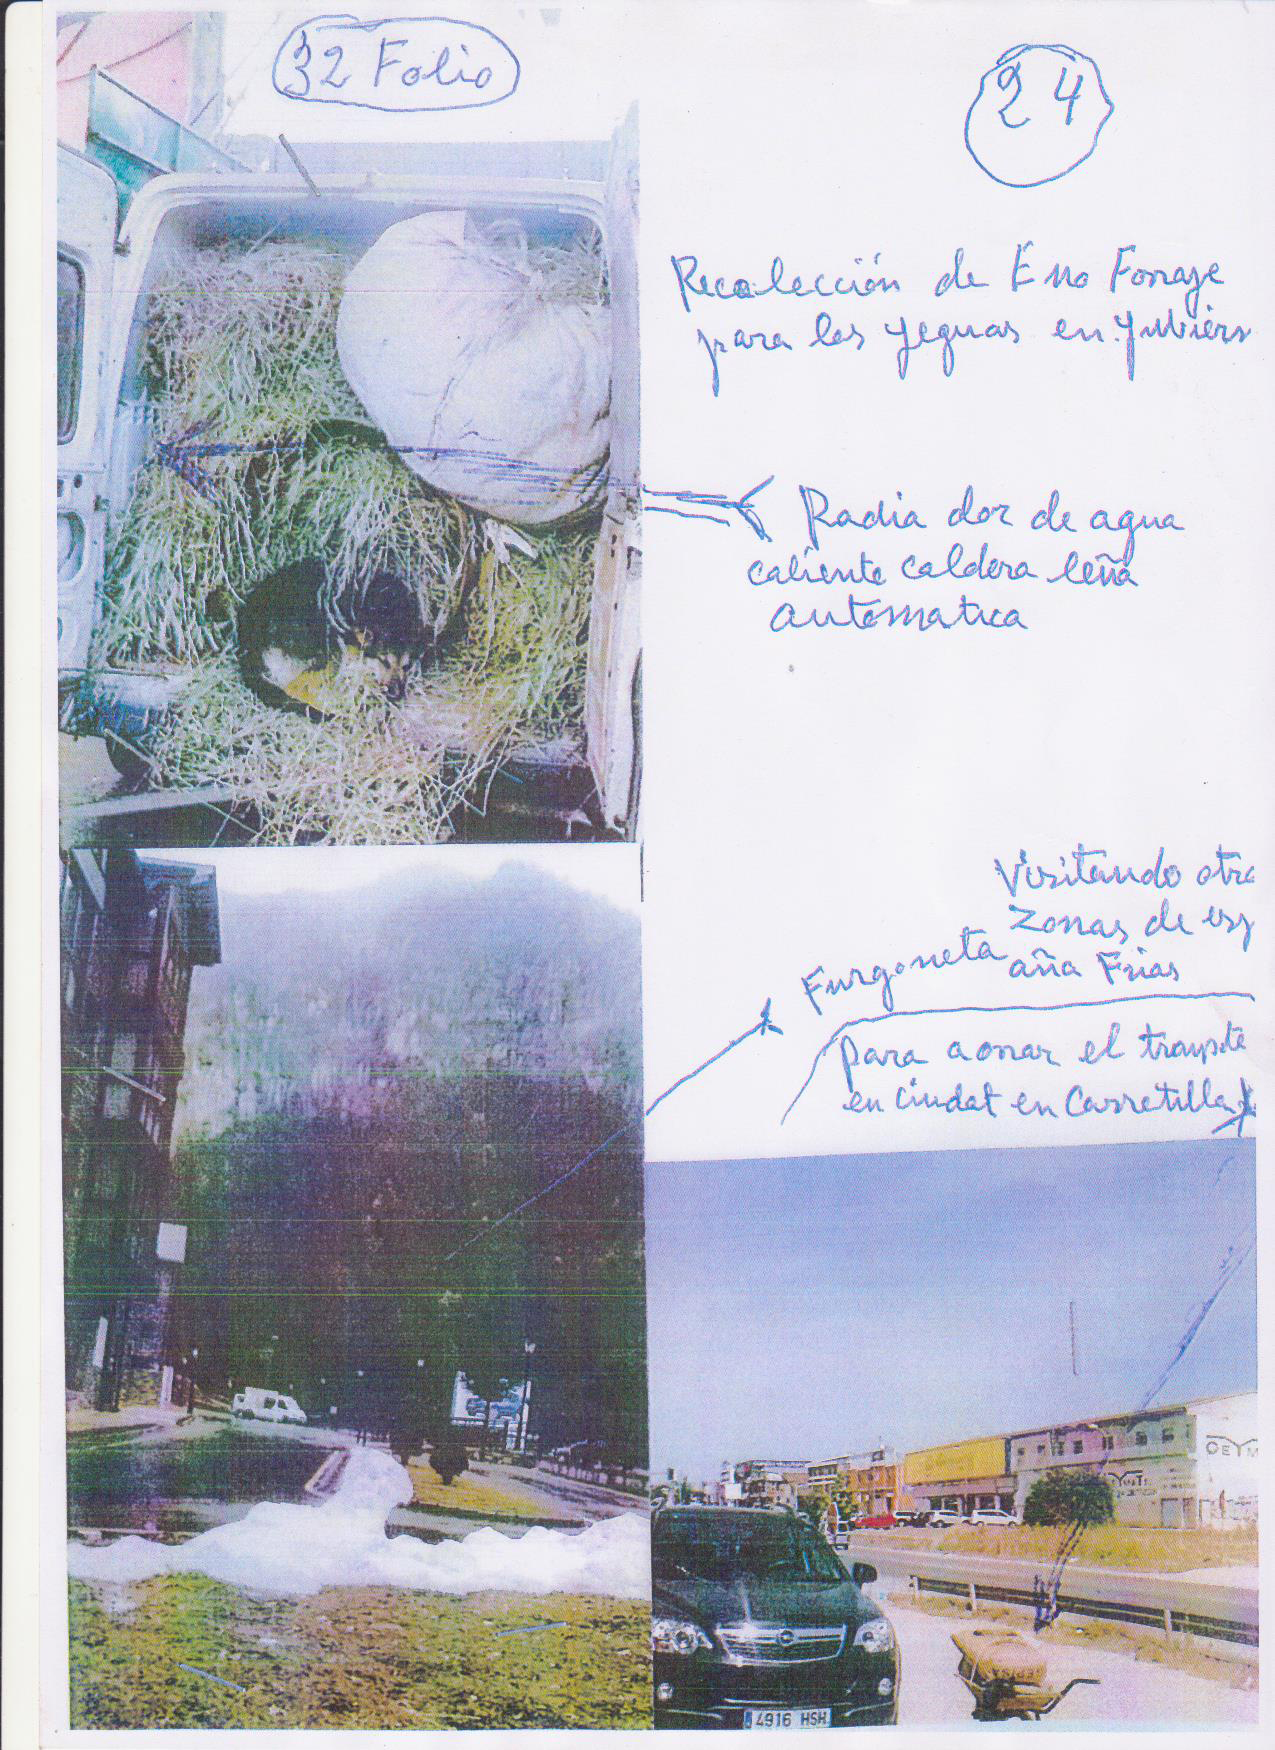 32 Folio
24
Recolección de Eno Forraje
para las yeguas en Ynbiern
Radia dor de agua
caliente caldera leña
automatica
Visitando otra
zonas de esp
Furgoneta aña Frias
para aorrar el
en ciudat en Carretilla
OEYM
4916 HSH